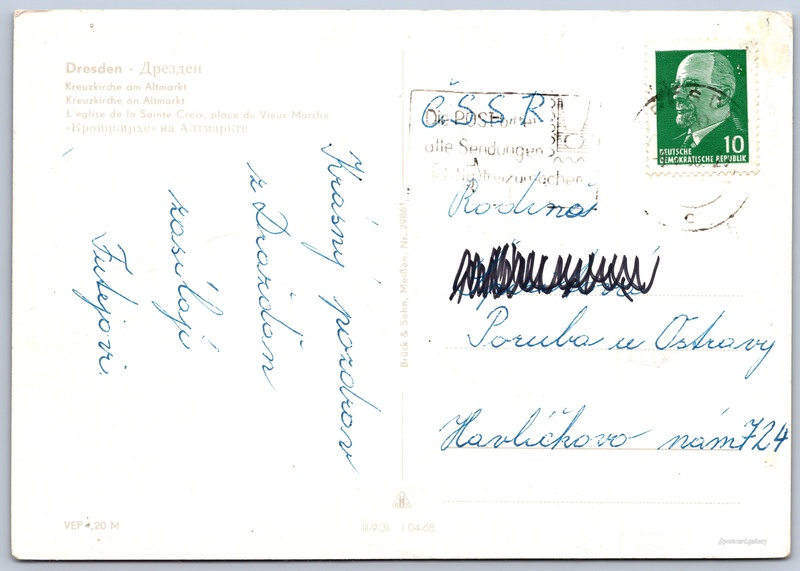 Dresden - Дрезден
Kreuzkirche am Altmarkt
Kreuzkirche on Altmarkt
L'église de la Sainte Croix, place du Vieux Marche
«Кройцкирхе» на Алтмаркте
Krásný pozdrav
z Drážďan
zasílají
Futejovi.
VEP -,20 M
Brück & Sohn, Meißen, Nr. 2980
III-9-31 I 04-68
ČSSR
Die POST
alle Sendungen
10
DEUTSCHE
DEMOKRATISCHE REPUBLIK
Rodina
Poruba u Ostravy
Havlíčkovo nám 724
@postcard.gallery